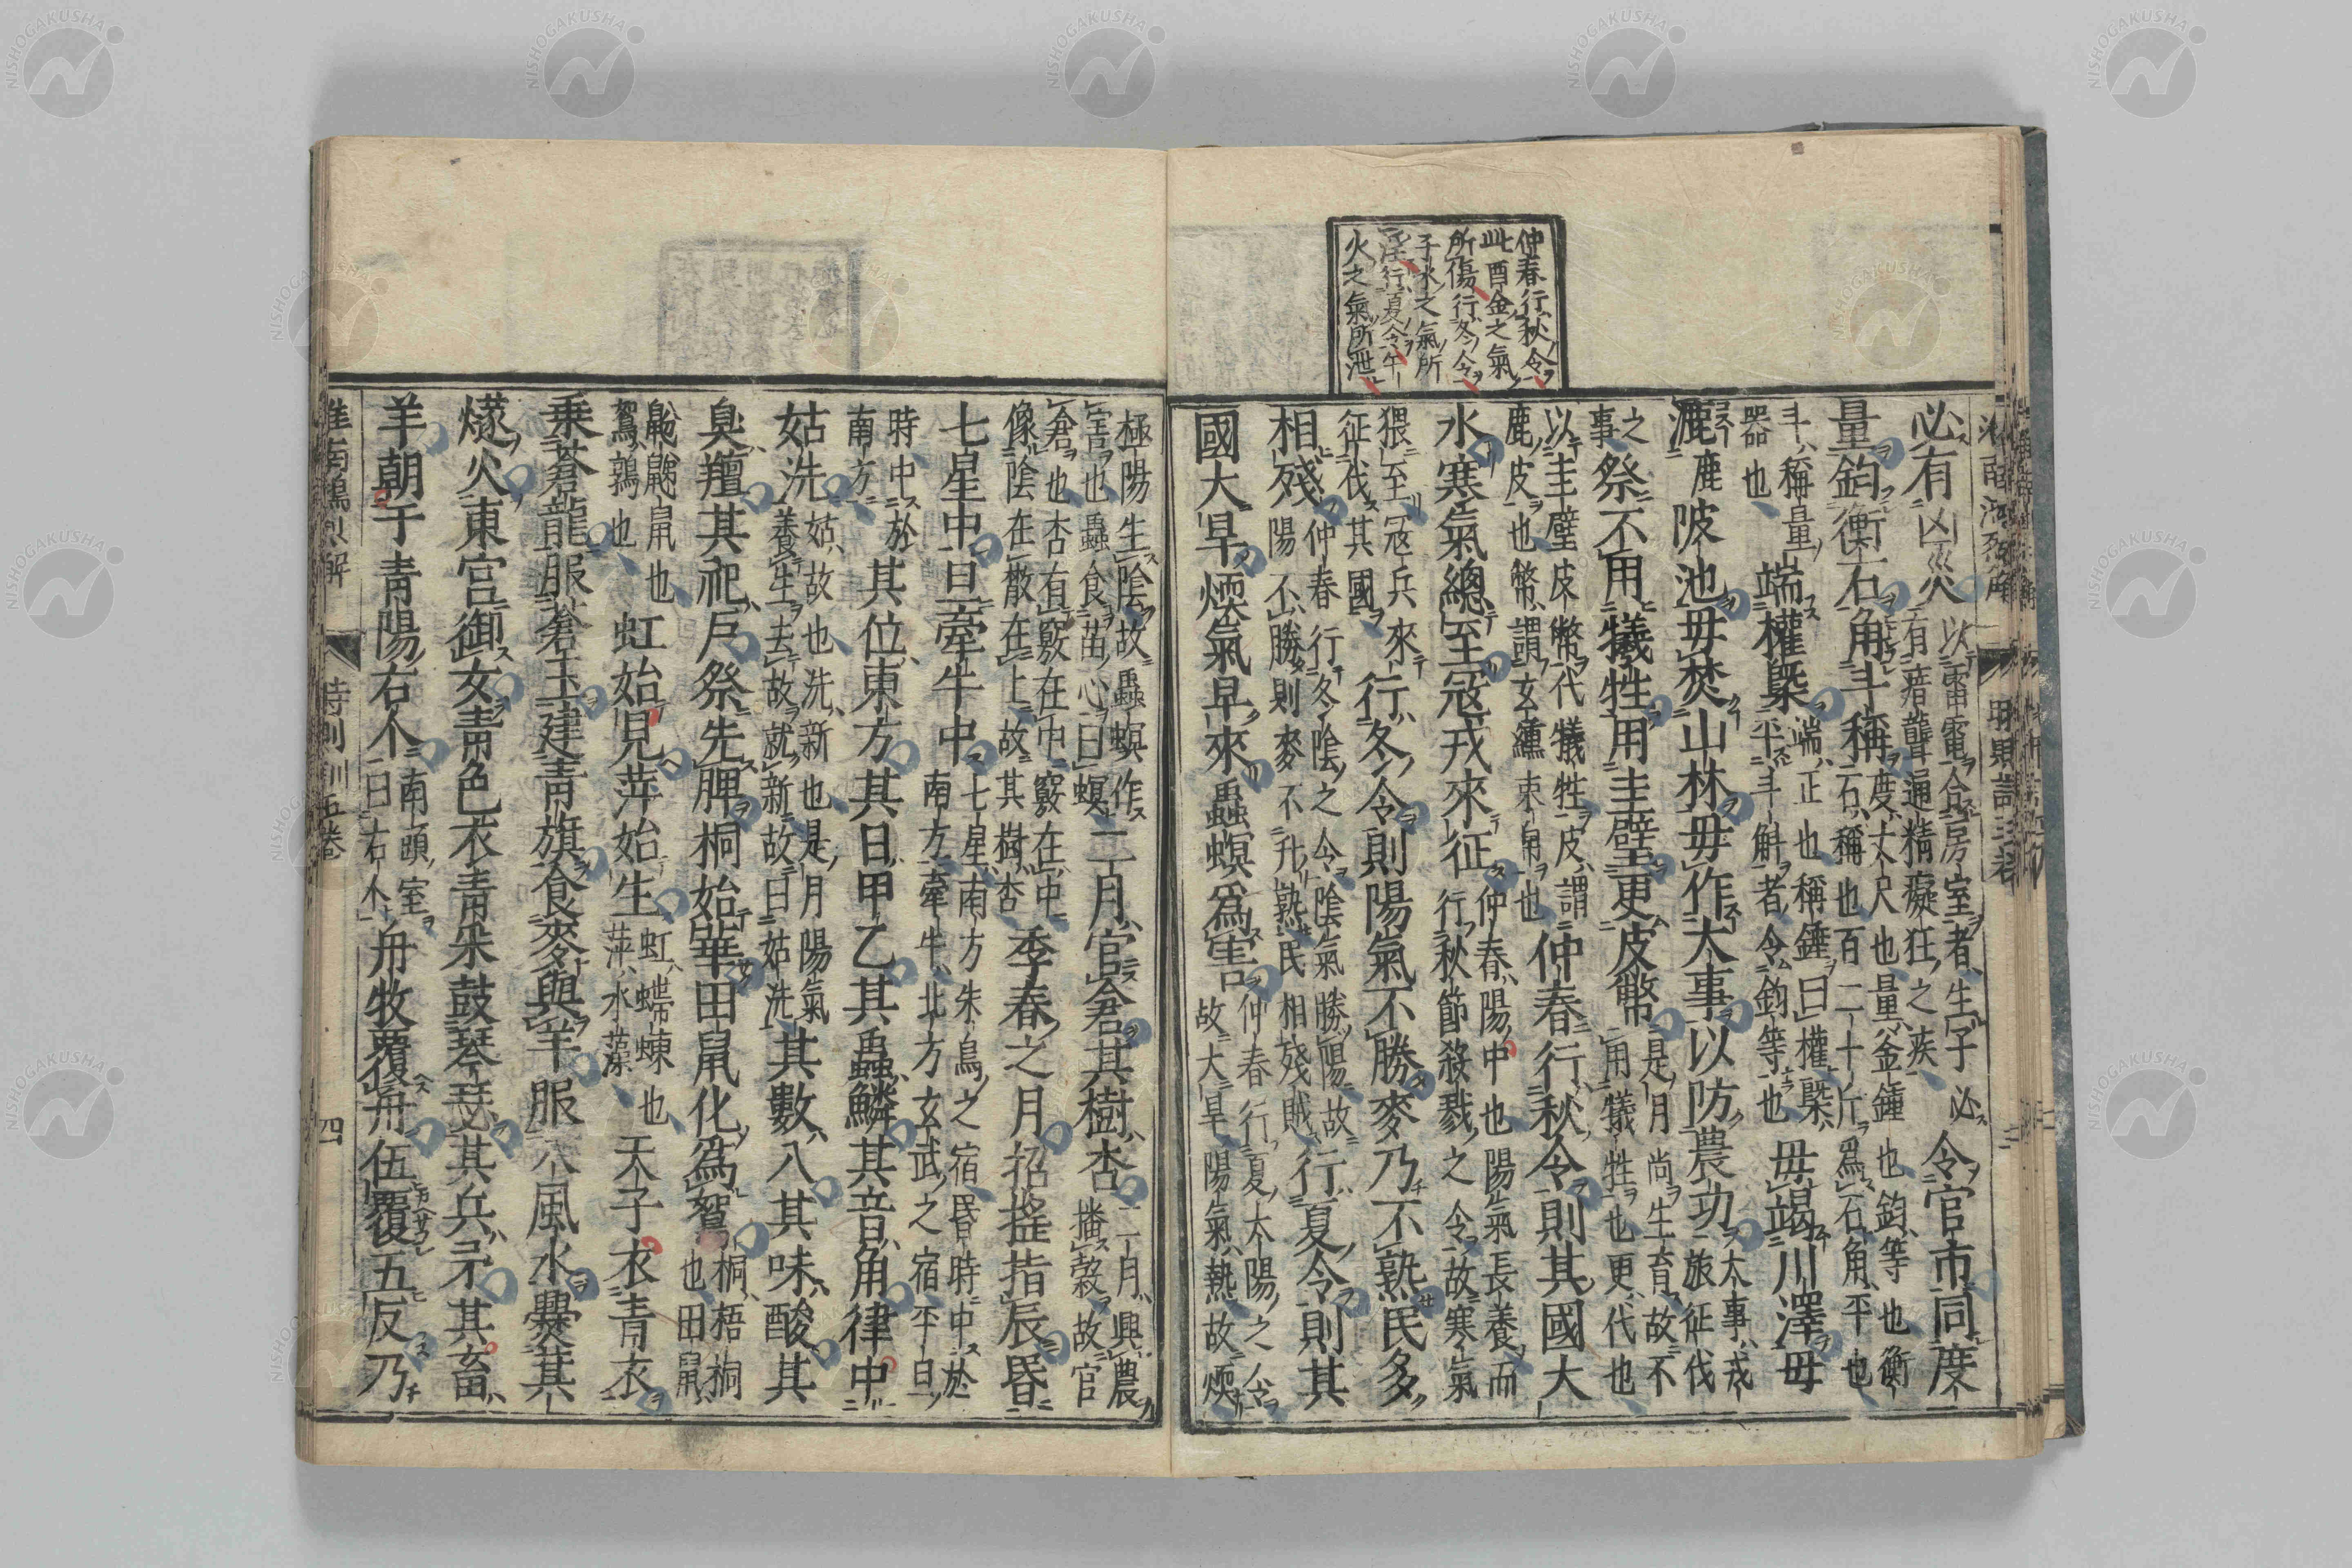 仲春行秋令
此酉金之氣
所傷行冬令
子水之氣所
淫行夏令午
火之氣所泄
必有凶災以雷電合房室者生子必有瘖聾通精癡狂之疾令官市同度
量鈞衡石角斗稱度丈尺也量釜鍾也鈞等也衡石稱也百二十斤爲石角平也
斗稱量器也端權槩端正也稱錘曰權槩平斗斛者令鈞等也毋竭川澤毋
漉陂池毋焚山林毋作大事以防農功大事戎旅征伐
之事祭不用犧牲用圭璧更皮幣是月尚生育故不用犧牲也更代也
以圭璧皮幣代犧牲皮謂鹿皮也幣謂玄纁束帛也仲春行秋令則其國大
水寒氣總至寇戎來征仲春陽中也陽氣長養而行秋節殺戮之令故寒氣
猥至寇兵來征伐其國行冬令則陽氣不勝麥乃不熟民多
相殘仲春行冬陰之令陰氣勝陽故陽不勝則麥不升熟民相殘賊行夏令則其
國大旱煗氣早來蟲螟爲害仲春行夏太陽之令故大旱陽氣熱故煗
極陽生陰故蟲螟作害也蟲食苗心曰螟二月官倉其樹杏二月興農播穀故官
倉也杏有竅在中竅在中像陰在散在上故其樹杏季春之月招搖指辰昏
七星中旦牽牛中七星南方朱鳥之宿昏時中於南方牽牛北方玄武之宿平旦
時中於南方其位東方其日甲乙其蟲鱗其音角律中
姑洗姑故也洗新也是月陽氣養生去故就新故曰姑洗其數八其味酸其
臭羶其祀戶祭先脾桐始華田鼠化爲鴽桐梧桐也田鼠
鼢鼠也鴽鶉也虹始見萍始生虹螮蝀也萍水藻也天子衣青衣
乘蒼龍服蒼玉建青旗食麥與羊服八風水爨萁
燧火東宮御女青色衣青采鼓琴瑟其兵矛其畜
羊朝于青陽右个南頭室曰右个舟牧覆舟五覆五反乃
時則訓五卷
四